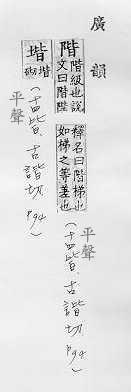 廣韻
階
階級也說
文曰階陛
釋名曰階梯也
如梯之等差也
平聲
(十四皆.古諧切 P94)
堦
堦
砌
平聲
(十四皆.古諧切 P94)